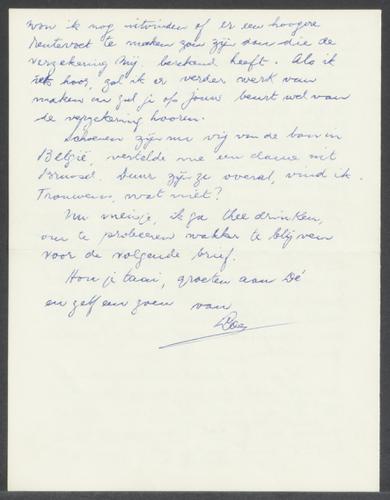 kon ik nog uitvinden of er een hoogere
rentevoet te maken zou zijn dan die de
verzekering Mij. berekend heeft. Als ik
iets hoor, zal ik er verder werk van
maken en zul je op jouw beurt wel van
de verzekering hooren.
Schoenen zijn nu vrij van de bon in
België, vertelde me een dame uit
Brussel. Duur zijn ze overal, vind ik.
Trouwens, wat niet?
Nu meisje, ik ga thee drinken,
om te probeeren wakker te blijven
voor de volgende brief.
Hou je taai, groeten aan Dé
en zelf een zoen van